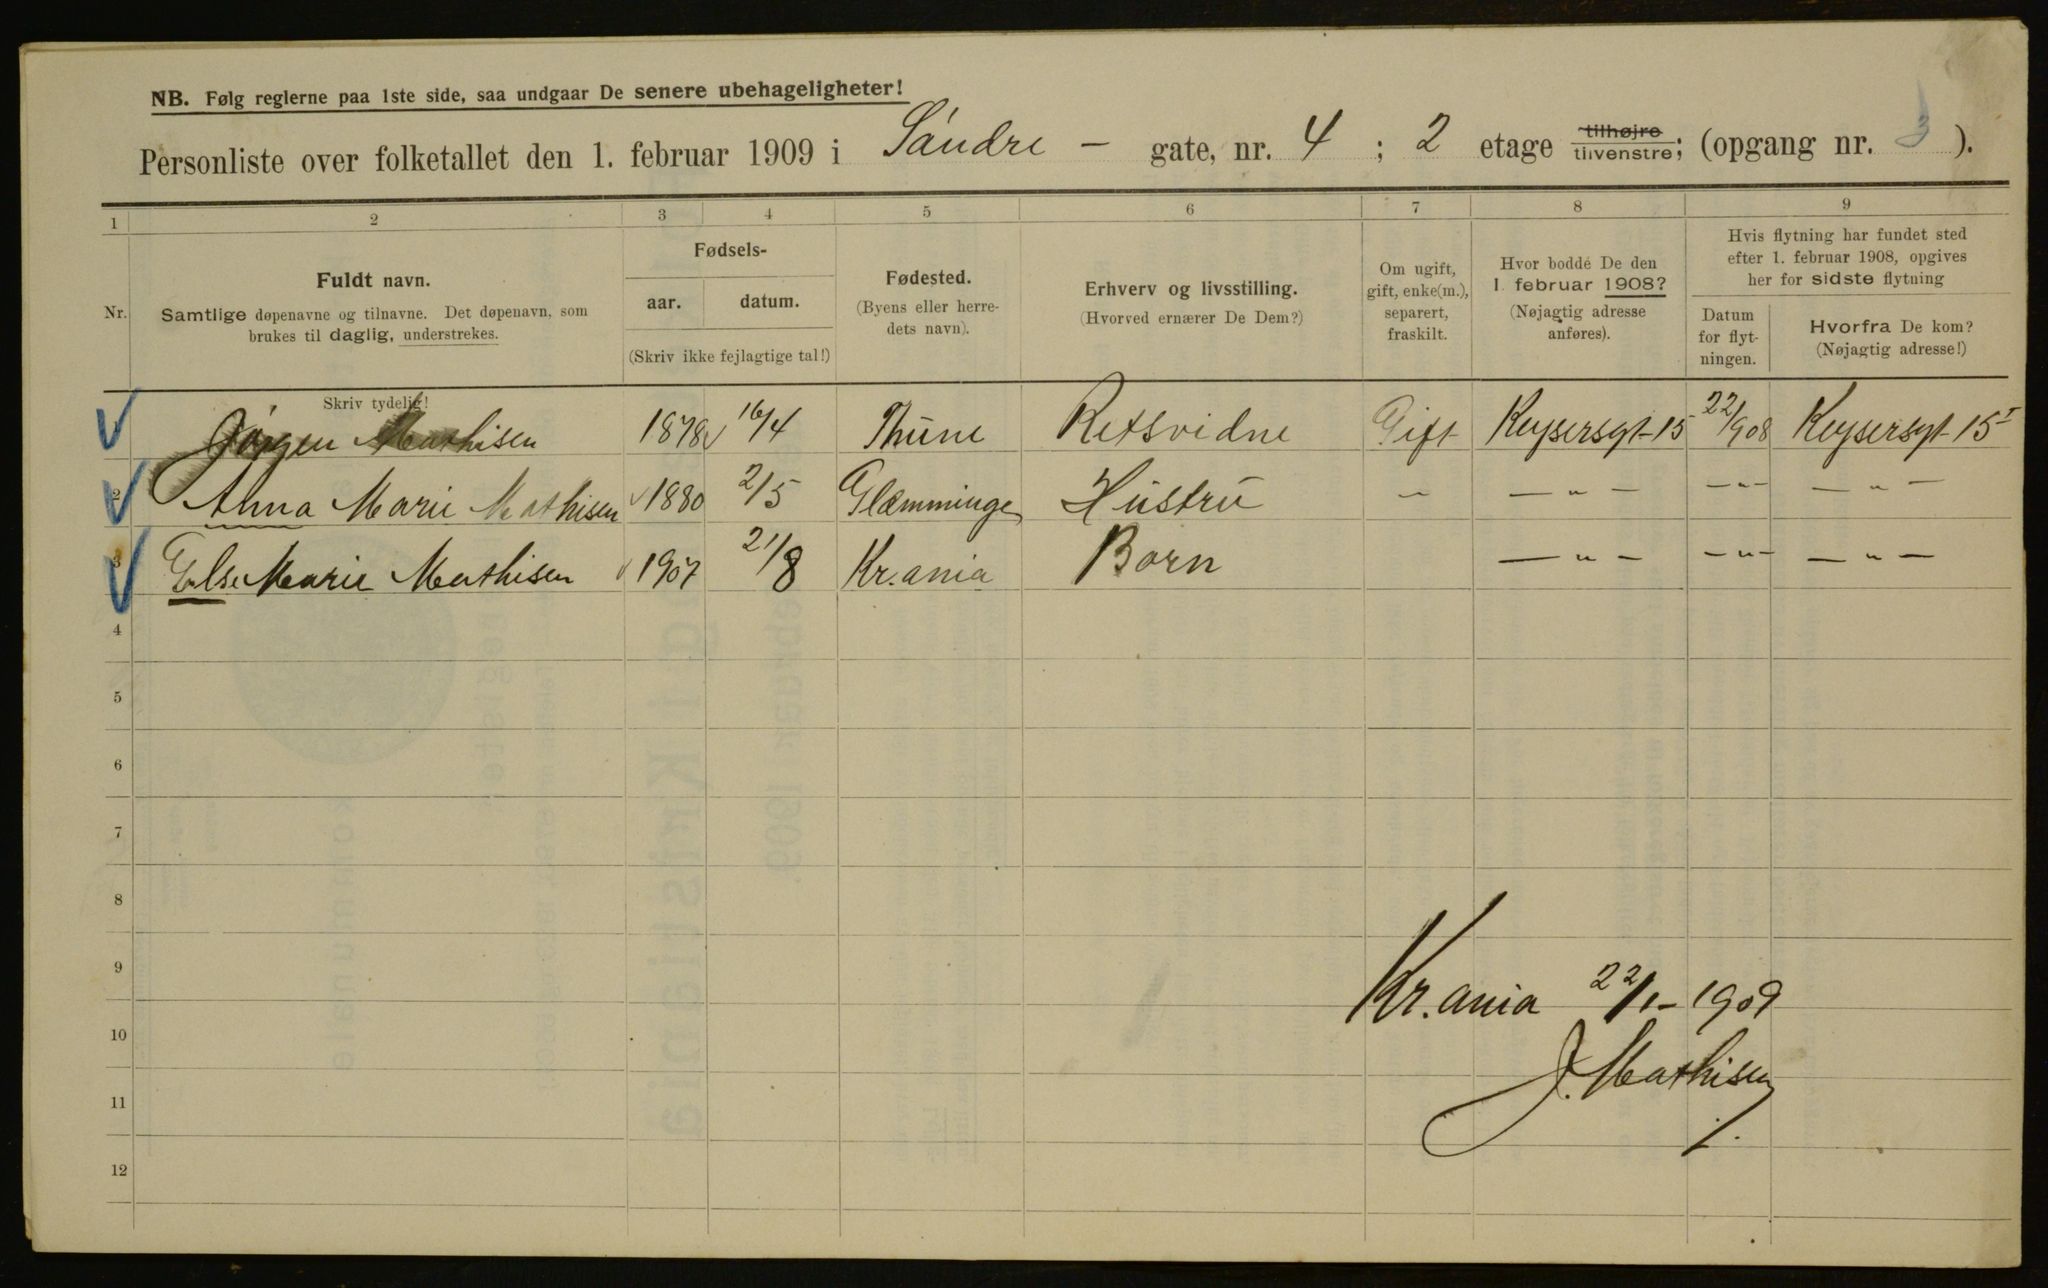 NB. Følg reglerne paa 1ste side, saa undgaar De senere ubehageligheter!
Personliste over folketallet den 1. februar 1909 i Søndre - gate, nr. 4 ; 2 etage tilhøjre tilvenstre; (opgang nr. 3 ).
1 2 3 4 5 6 7 8 9
Nr.
Fuldt navn.
Samtlige døpenavne og tilnavne. Det døpenavn, som
brukes til daglig, understrekes.
Skriv tydelig!
Fødsels-
aar. datum.
(Skriv ikke fejlagtige tal!)
Fødested.
(Byens eller herre-
dets navn).
Erhverv og livsstilling.
(Hvorved ernærer De Dem?)
Om ugift,
gift, enke(m.),
separert,
fraskilt.
Hvor bodde De den
1. februar 1908?
(Nøjagtig adresse
anføres).
Hvis flytning har fundet sted
efter 1. februar 1908, opgives
her for sidste flytning
Datum
for flyt-
ningen.
Hvorfra De kom?
(Nøjagtig adresse!)
Jørgen Mathisen 1878 16/4 Thune Retsvidne Gift Keysersgt 15 22/908 Keysersgt 15 I
2 Anna Marie Mathisen 1880 2/5 Glemminge Hustru - - " - - " - - " -
3 Else Marie Mathisen 1907 21/8 Kr.ania Barn - " - - " - - " -
4
5
6
7
8
9
10
11
12
Kr.ania 22/1 - 1909
J. Mathisen